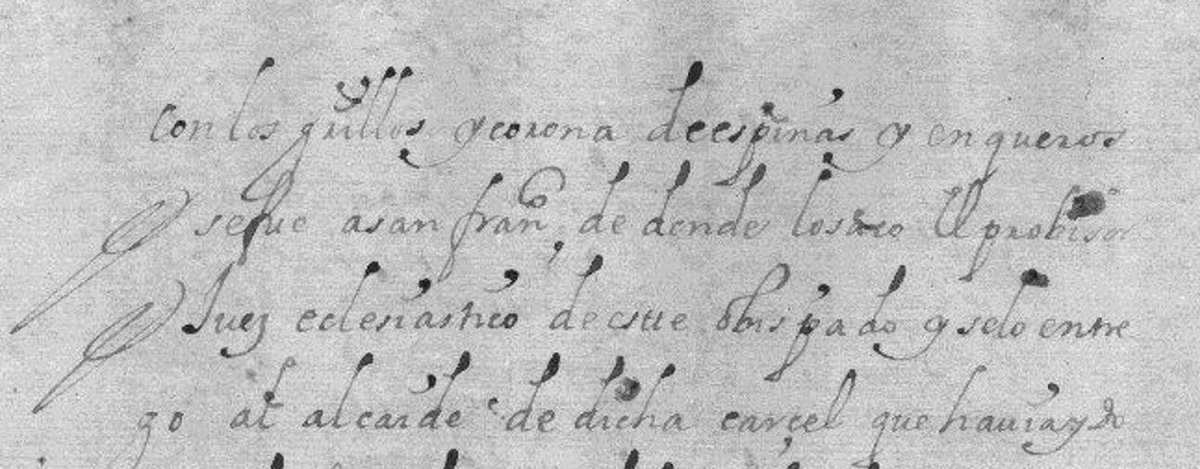 con los grillos y corona de espinas y en queros
y se fue a san fran.co de dende lo saco el probisor
y Juez eclesiastico de estte obispado y se lo entre
go al alcaide de dicha carcel que hauia ydo